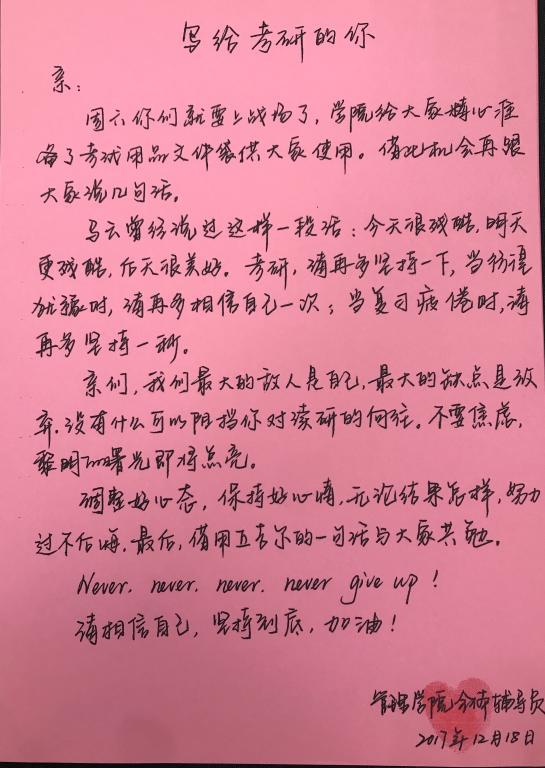 写给考研的你
亲：
周六你们就要上战场了，学院给大家精心准
备了考试用品文件袋供大家使用。借此机会再跟
大家说几句话。
马云曾经说过这样一段话：今天很残酷，明天
更残酷，后天很美好。考研，请再多坚持一下，当彷徨
犹豫时，请再多相信自己一次；当复习疲倦时，请
再多坚持一秒。
亲们，我们最大的敌人是自己，最大的缺点是放
弃，没有什么可以阻挡你对读研的向往。不要焦虑，
黎明的曙光即将点亮。
调整好心态，保持好心情，无论结果怎样，努力
过不后悔，最后，借用丘吉尔的一句话与大家共勉。
Never, never, never, never give up！
请相信自己，坚持到底，加油！
管理学院全体辅导员
2017年12月18日